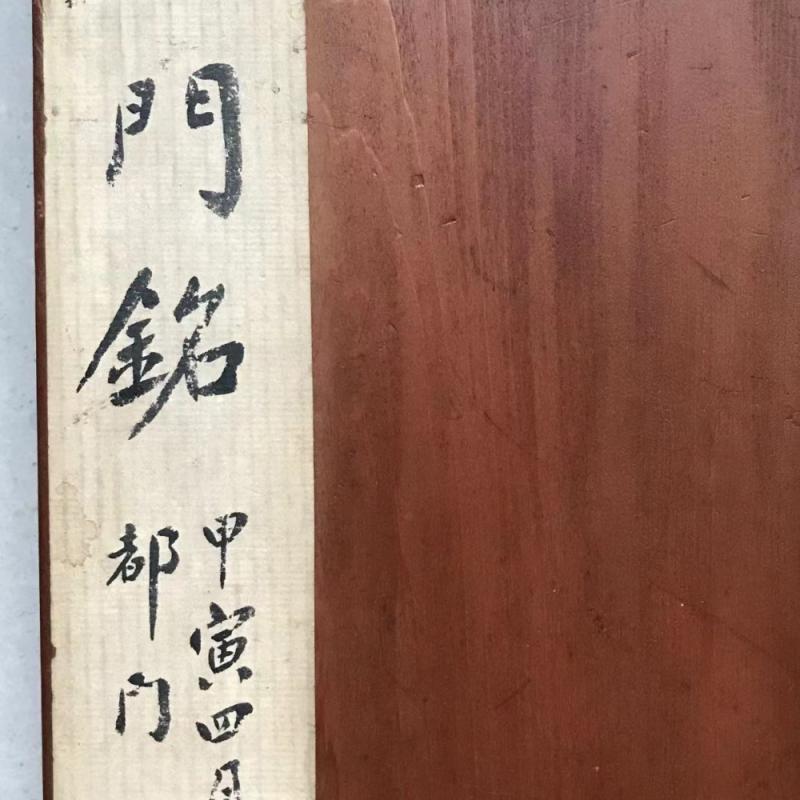 門銘
甲寅四月
都门